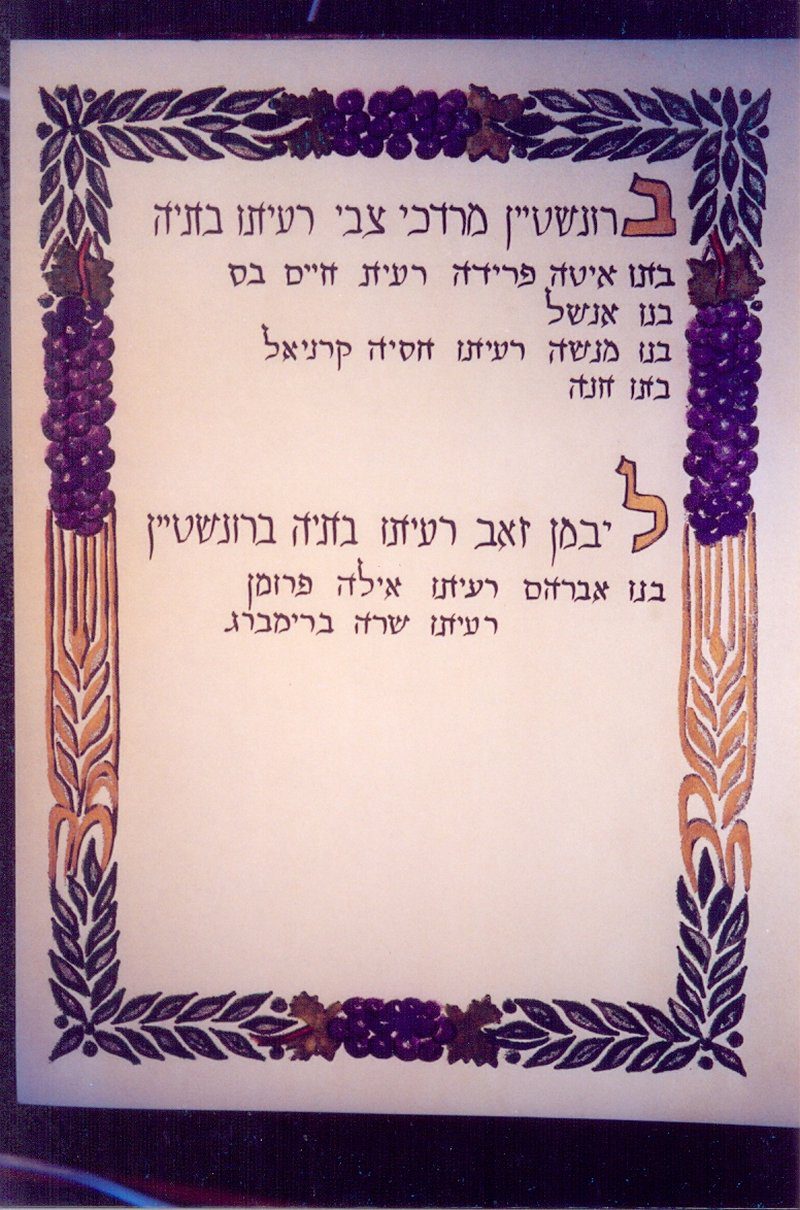 ברונשטיין מרדכי צבי רעיתו בתיה
בתו איטה פרידה רעית חיים בס
בנו אנשל
בנו מנשה רעיתו חסיה קרניאל
בתו חנה
ליבמן זאב רעיתו בתיה ברונשטיין
בנו אברהם רעיתו אילה פרומן
רעיתו שרה ברימברג